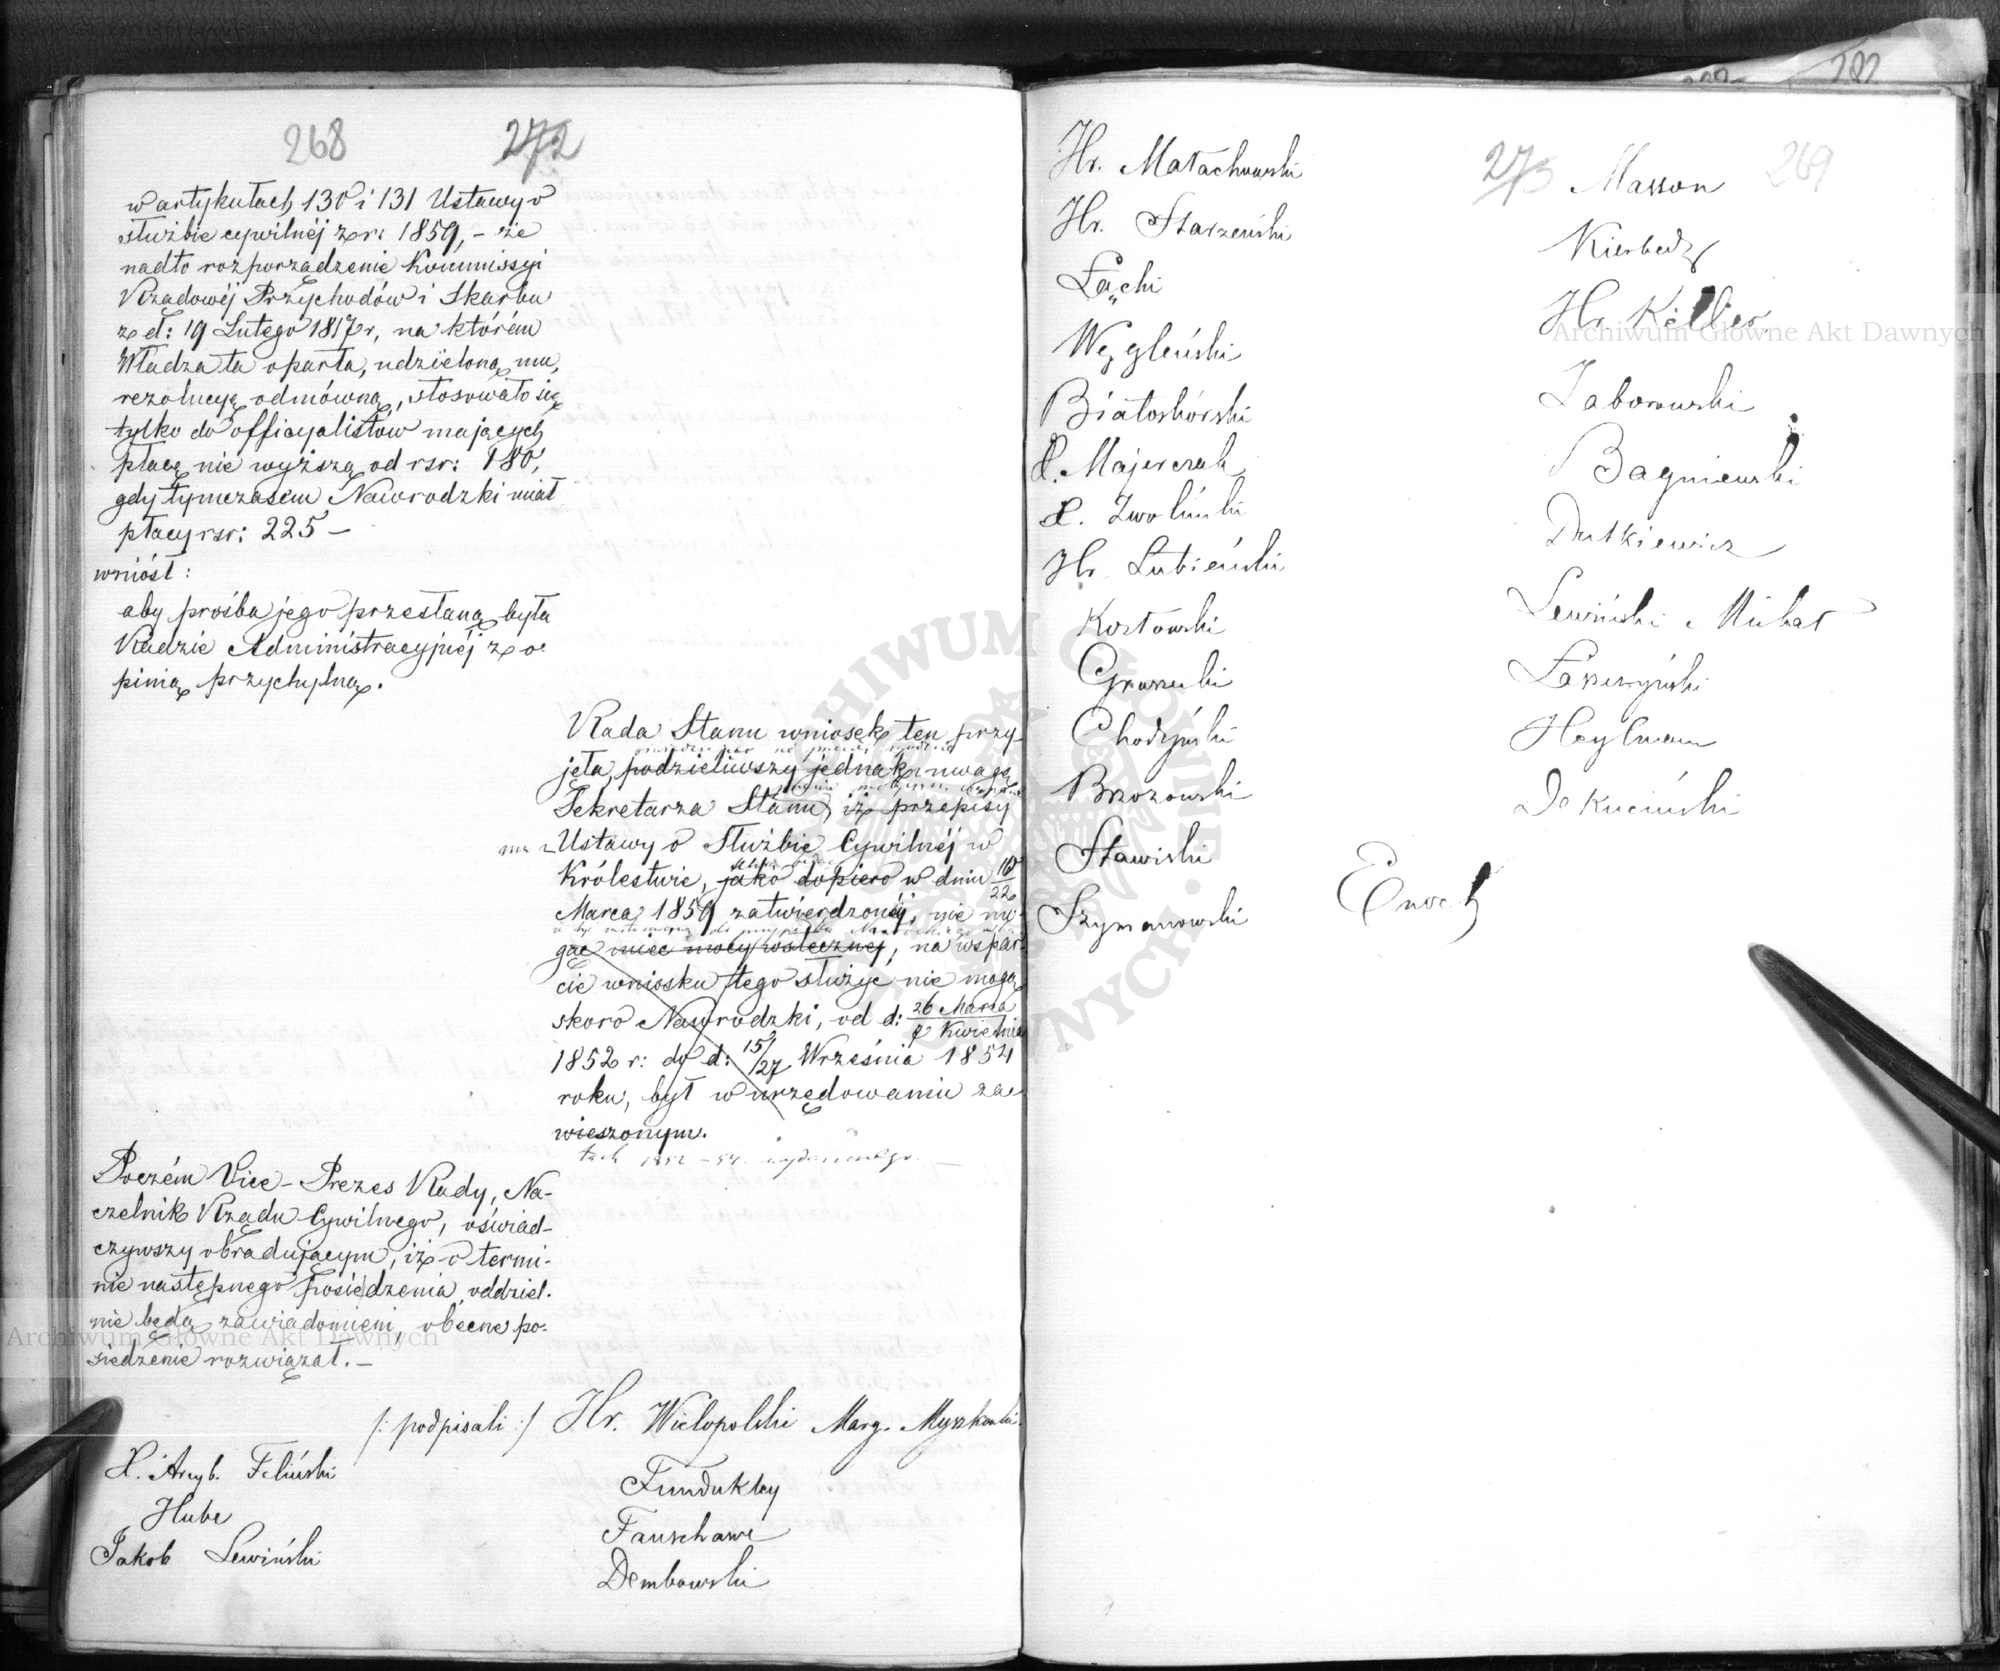 268 272
w artykułach 130 i 131 Ustawy o
służbie cywilnéj z r: 1859, – że
nadto rozporządzenie Kommissyi
Rządowéj Przychodów i Skarbu
z d: 19 Lutego 1817 r, na którém
Władza ta oparła, udzieloną mu,
rezolucyą odmówną, stosowało się
tylko do officyalistów mających
płacę nie wyższą od rsr: 180,
gdy tymczasem Nawrodzki miał
płacy rsr: 225 –
wniósł:
aby prośba jego przesłaną była
Radzie Administracyjnéj z o-
pinią przychylną.
Rada Stanu wniosek ten przy-
jęła, podzieliwszy jednak uwagę
Sekretarza Stanu, iż przepisy
Ustawy o Służbie Cywilnéj w
Królestwie, jako dopiero w dniu 10/22
Marca 1859 zatwierdzonéj, nie mo-
gąc mieć mocy wstecznej, na wspar-
cie wniosku tego służyć nie mogą
skoro Nawrodzki, od d: 26 Marca/7 Kwietnia
1852 r: do d: 15/27 Września 1854
roku, był w urzędowaniu za-
wieszonym.
tach 1852 – 54.
Poczém Vice-Prezes Rady, Na-
czelnik Rządu Cywilnego, oświad-
czywszy obradującym, iż o termi-
nie następnego posiedzenia oddziel-
nie będą zawiadomieni, obecne po-
siedzenie rozwiązał. –
/: podpisali :/ Hr. Wielopolski Marg. Myszkowski
X. Arcyb. Feliński
Hube
Jakob Lewiński
Fundukley
Fanschawe
Dembowski
282
273 269
Hr. Małachowski
Hr. Starzeński
Łącki
Węgleński
Białoskórski
X. Majerczak
X. Zwoliński
Hr. Łubieński
Kozłowski
Gruszecki
Chodzyński
Brzozowski
Stawiski
Szymanowski
Masson
Kierbedź
Hr. Keller
Zaborowski
Bagniewski
Dutkiewicz
Lewiński Michał
Łaszczyński
Heylman
De Kuciński
Enoch
Archiwum Główne Akt Dawnych
Archiwum Główne Akt Dawnych
ARCHIWUM GŁÓWNE AKT DAWNYCH